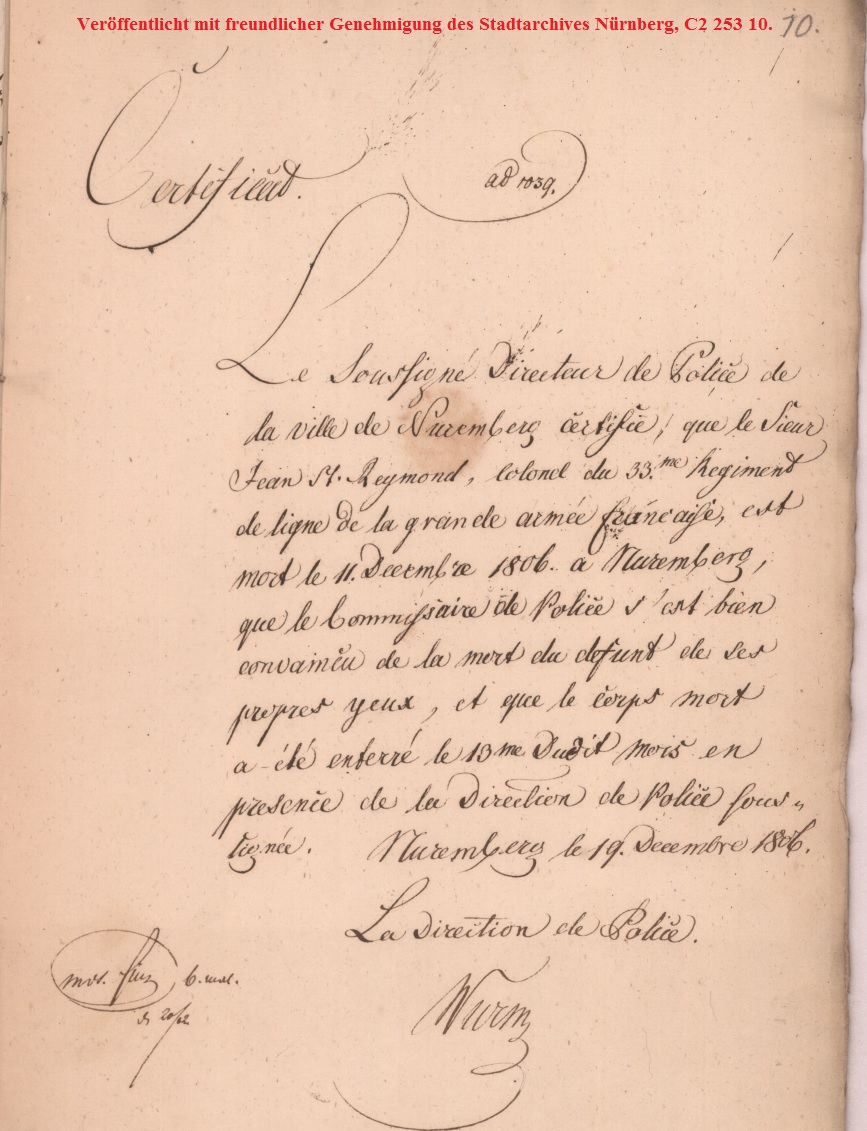 Veröffentlicht mit freundlicher Genehmigung des Stadtarchives Nürnberg, C2 253 10.
10.
Certificat.
ad 1039.
Le Soussigné Directeur de Police de
la ville de Nuremberg certifie, que le Sieur
Jean St. Reymond, Colonel du 33.me Regiment
de ligne de la grande armée française, est
mort le 11. Decembre 1806. a Nuremberg,
que le Commissaire de Police s'est bien
convaincu de la mort du defunt de ses
propres yeux, et que le corps mort
a été enterré le 13me Dudit mois en
presence de la Direction de Police sous-
signée. Nuremberg le 19. Decembre 1806.
La Direction de Police.
Wurm